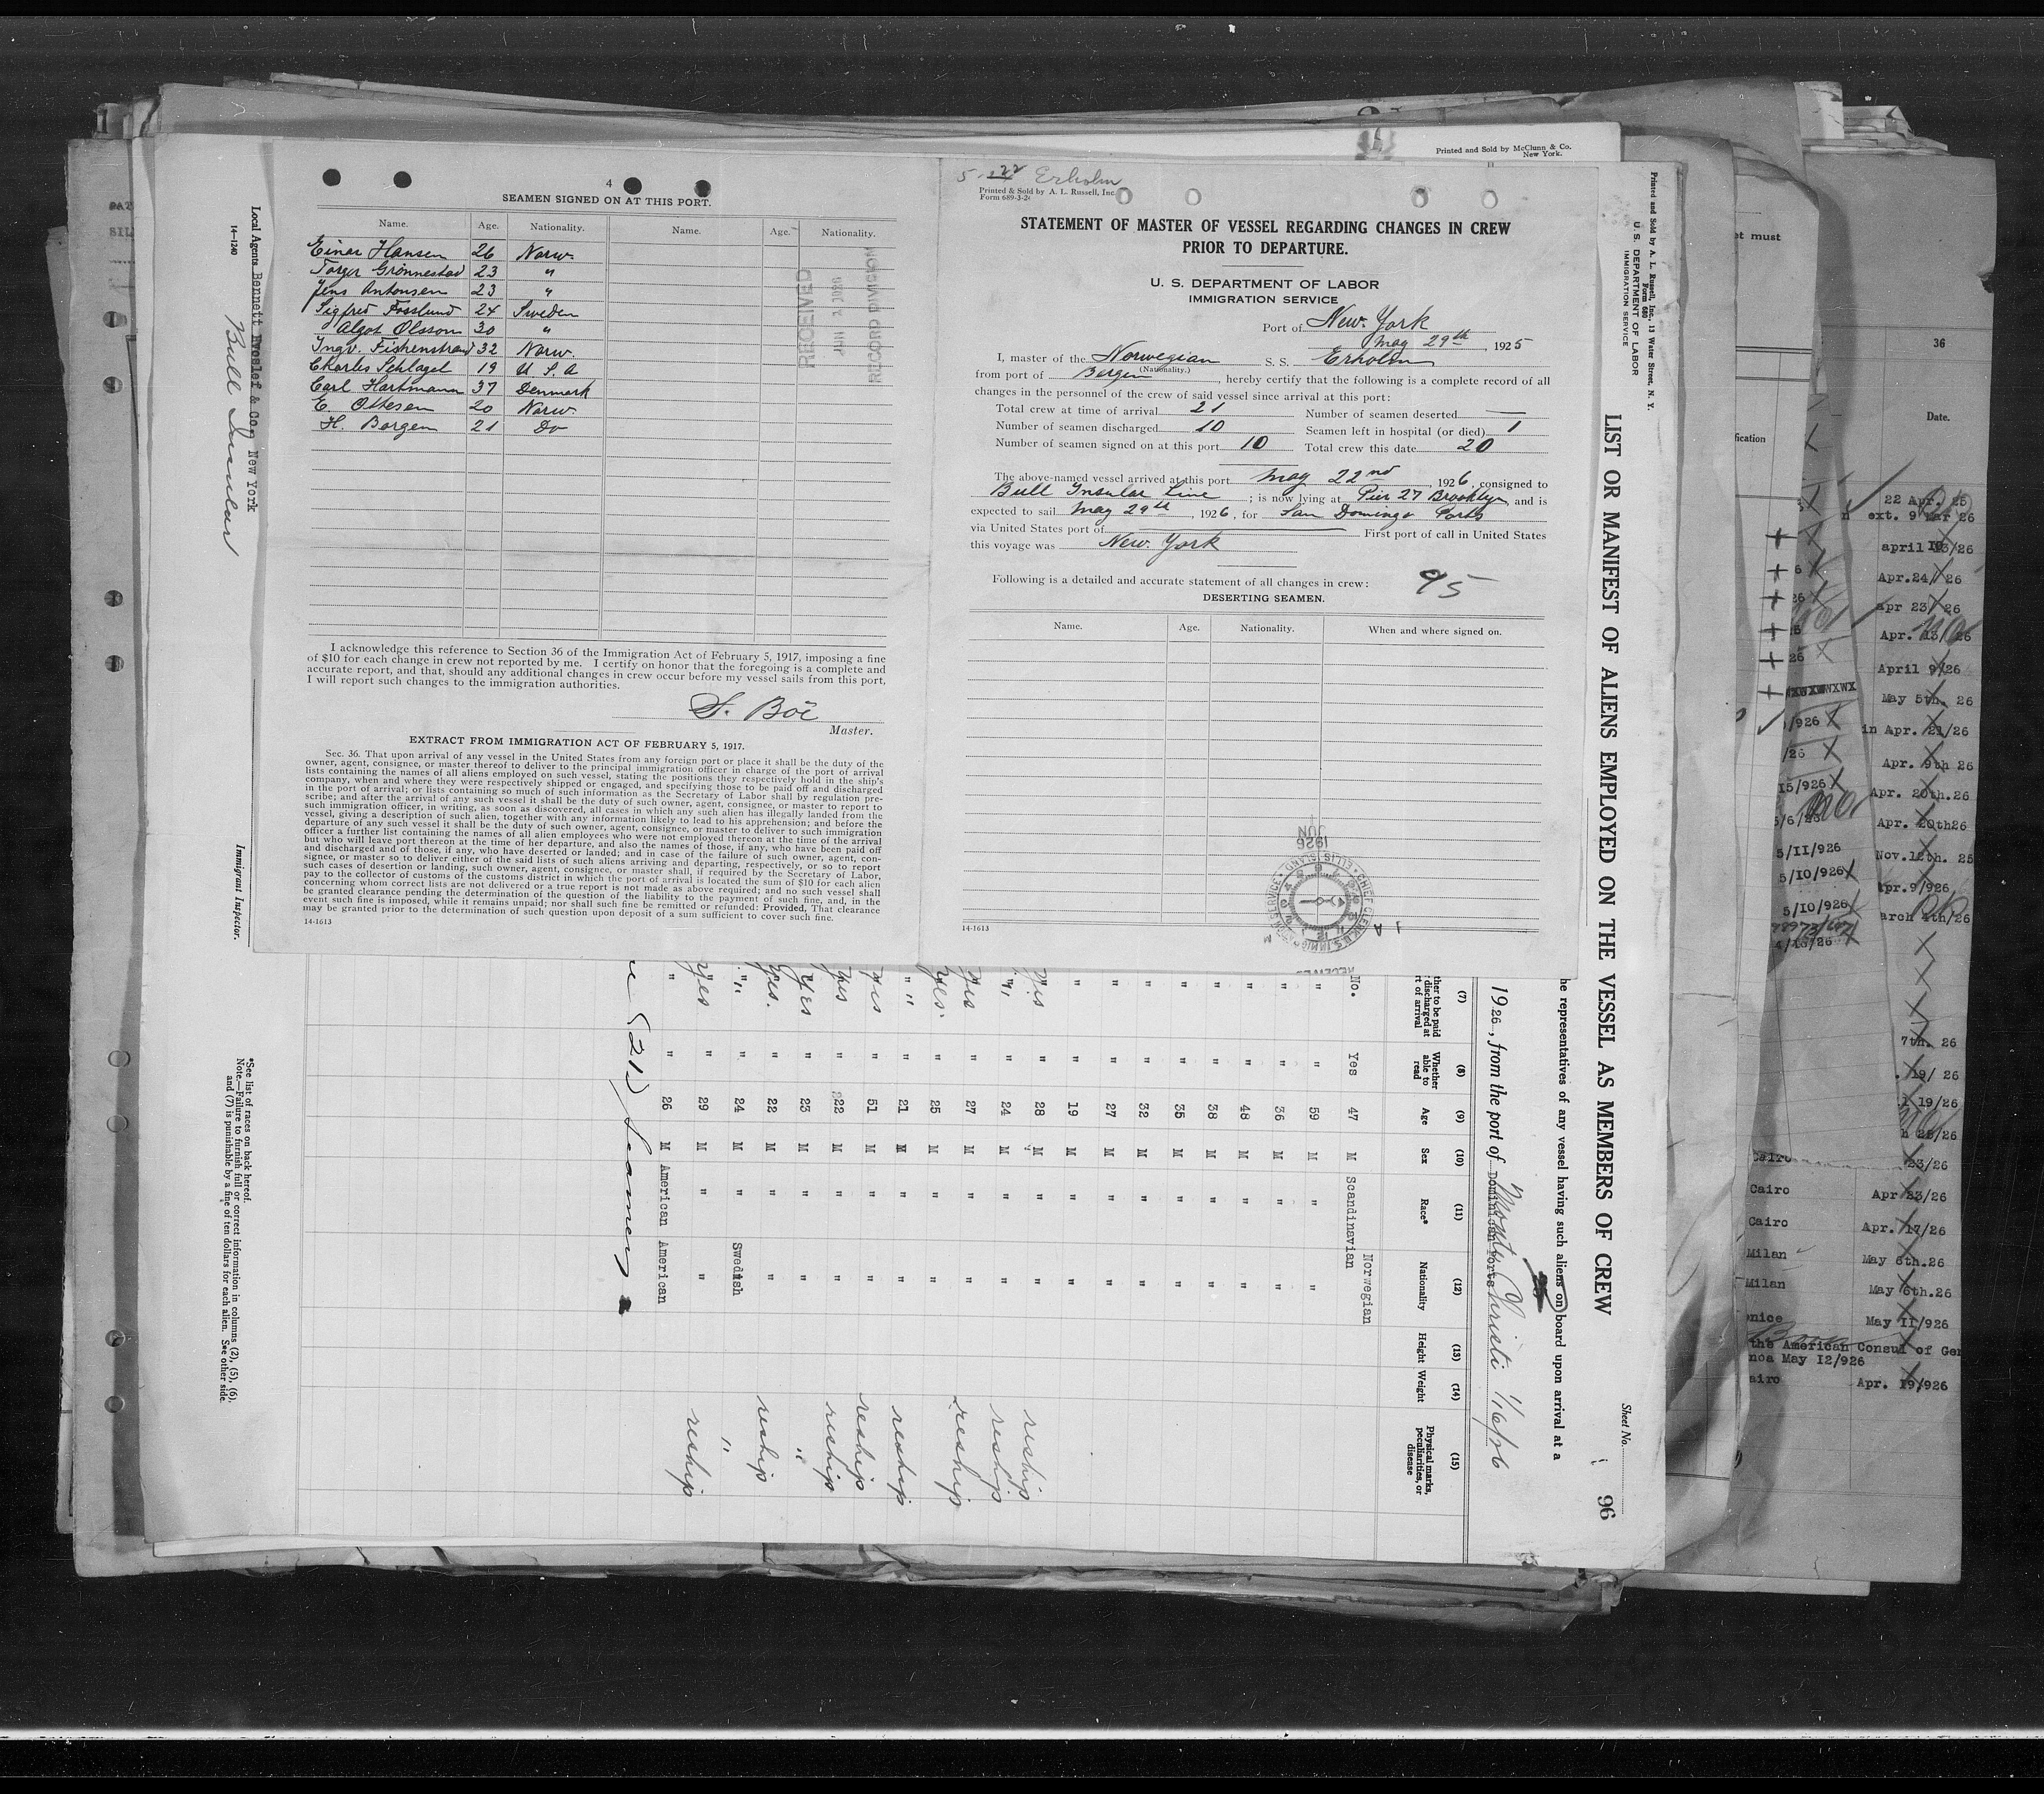 4
SEAMEN SIGNED ON AT THIS PORT.
Name. Age. Nationality. Name. Age. Nationality.
Einar Hansen 26 Norw.
Torger Grönnestad 23 "
Jens Antonsen 23 "
Sigfred Fosslund 24 Sweden
Algot Olsson 30 "
Ingv. Fiskenstrand 32 Norw.
Charles Schlagel 19 U S A
Carl Hartmann 37 Denmark
E. Ottesen 20 Norw.
H. Borgen 21 Do
RECEIVED
RECORD DIVISION
I acknowledge this reference to Section 36 of the Immigration Act of February 5, 1917, imposing a fine
of $10 for each change in crew not reported by me. I certify on honor that the foregoing is a complete and
accurate report, and that, should any additional changes in crew occur before my vessel sails from this port,
I will report such changes to the immigration authorities.
S. Böe
Master.
EXTRACT FROM IMMIGRATION ACT OF FEBRUARY 5, 1917.
Sec. 36. That upon arrival of any vessel in the United States from any foreign port or place it shall be the duty of the
owner, agent, consignee, or master thereof to deliver to the principal immigration officer in charge of the port of arrival
lists containing the names of all aliens employed on such vessel, stating the positions they respectively hold in the ship's
company, when and where they were respectively shipped or engaged, and specifying those to be paid off and discharged
in the port of arrival; or lists containing so much of such information as the Secretary of Labor shall by regulation pre-
scribe; and after the arrival of any such vessel it shall be the duty of such owner, agent, consignee, or master to report to
such immigration officer, in writing, as soon as discovered, all cases in which any such alien has illegally landed from the
vessel, giving a description of such alien, together with any information likely to lead to his apprehension; and before the
departure of any such vessel it shall be the duty of such owner, agent, consignee, or master to deliver to such immigration
officer a further list containing the names of all alien employees who were not employed thereon at the time of the arrival
but who will leave port thereon at the time of her departure, and also the names of those, if any, who have been paid off
and discharged and of those, if any, who have deserted or landed; and in case of the failure of such owner, agent, con-
signee, or master so to deliver either of the said lists of such aliens arriving and departing, respectively, or so to report
such cases of desertion or landing, such owner, agent, consignee, or master shall, if required by the Secretary of Labor,
pay to the collector of customs of the customs district in which the port of arrival is located the sum of $10 for each alien
concerning whom correct lists are not delivered or a true report is not made as above required; and no such vessel shall
be granted clearance pending the determination of the question of the liability to the payment of such fine, and, in the
event such fine is imposed, while it remains unpaid; nor shall such fine be remitted or refunded: Provided, That clearance
may be granted prior to the determination of such question upon deposit of a sum sufficient to cover such fine.
14-1613
5-22 Erholm
Printed & Sold by A. L. Russell, Inc.
Form 689-3-2
STATEMENT OF MASTER OF VESSEL REGARDING CHANGES IN CREW
PRIOR TO DEPARTURE.
U. S. DEPARTMENT OF LABOR
IMMIGRATION SERVICE
Port of New York
May 29th, 1925
I, master of the Norwegian S. S. Erholm
(Nationality.)
from port of Bergen, hereby certify that the following is a complete record of all
changes in the personnel of the crew of said vessel since arrival at this port:
Total crew at time of arrival 21 Number of seamen deserted —
Number of seamen discharged 10 Seamen left in hospital (or died) 1
Number of seamen signed on at this port 10 Total crew this date 20
The above-named vessel arrived at this port May 22nd, 1926, consigned to
Bull Insular Line; is now lying at Pier 27 Brooklyn, and is
expected to sail May 29th, 1926, for San Domingo Ports
via United States port of First port of call in United States
this voyage was New York
Following is a detailed and accurate statement of all changes in crew: 95
DESERTING SEAMEN.
Name. Age. Nationality. When and where signed on.
JUN
1926
14-1613
Printed and Sold by McClunn & Co.
New York.
Printed and Sold by A. L. Russell, Inc., 13 Water Street, N. Y.
Form 680
U. S. DEPARTMENT OF LABOR
IMMIGRATION SERVICE
LIST OR MANIFEST OF ALIENS EMPLOYED ON THE VESSEL AS MEMBERS OF CREW
Sheet No. 96
he representatives of any vessel having such aliens on board upon arrival at a
1926, from the port of Dominican Ports Monty Christi 1/6/26
(7) (8) (9) (10) (11) (12) (13) (14) (15)
Whether able to read
Age
Sex
Race*
Nationality
Height
Weight
Physical marks, peculiarities, or disease
No. Yes 47 M Scandinavian Norwegian
" " 59 M " "
" " 36 M " "
" " 48 M " "
" " 38 M " "
" " 35 M " "
" " 32 M " "
" " 27 M " "
" " 19 M " "
yes " 28 M " " reship
" " 24 M " " reship
yes " 27 M " " reship
yes. " 25 M " "
" " 21 M " " reship
yes " 51 M " " reship
yes " 22 M " " reship
yes " 23 M " " "
yes. " 22 M " " reship
" " 24 M " Swedish "
yes " 29 M " " reship
" " 26 M American American
(21) Seamen
Local Agents Bennett Hvoslef & Co. New York
14-1240
Bull Insular
Immigrant Inspector.
*See list of races on back hereof.
Note.—Failure to furnish full or correct information in columns (2), (5), (6),
and (7) is punishable by a fine of ten dollars for each alien. See other side.
36
Date.
22 Apr. 25
ext. 9 Mar 26
april 13/26
Apr.24/ 26
apr 23/ 26
Apr. 13/ 26
April 9/26
May 5th. 26
in Apr. 21/26
Apr. 9th 26
Apr. 20th.26
Apr. 20th26
5/11/926 Nov.12th. 25
5/10/926 Apr.9/926
5/10/926 arch 4th/26
4/16/26
7th. 26
19/ 26
19/26
23/26
Cairo Apr 23/26
Cairo Apr. 17/26
Milan May 6th.26
Milan May 6th.26
enice May 11/926
the American Consul of Gen
noa May 12/926
airo Apr. 19/926